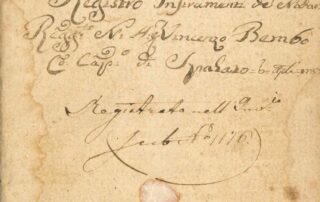 Registro Instrumenti de Nodari
Regg.to N. H. Vincenzo Bembo
Co: Cap.o di Spalato
Registrato nell
sub No 1176